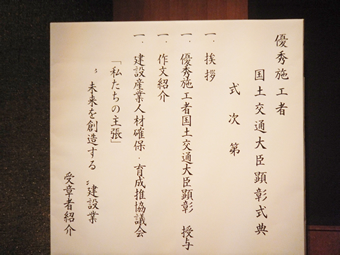 優秀施工者
国土交通大臣顕彰式典
式次第
一.挨拶
一.優秀施工者国土交通大臣顕彰 授与
一.作文紹介
一.建設産業人材確保・育成推協議会
「私たちの主張」
〜未来を創造する〜建設業
受章者紹介